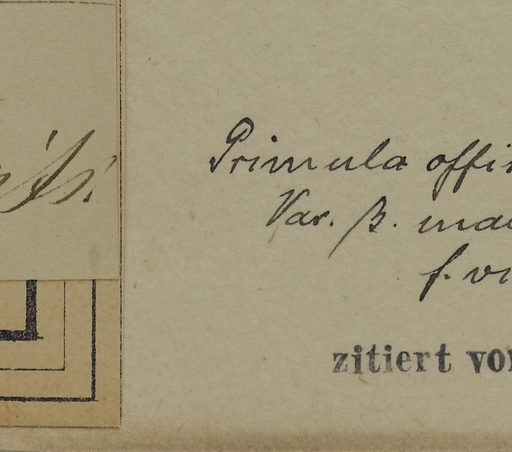 Primula offi
Var. β. mac
f. vi
zitiert von